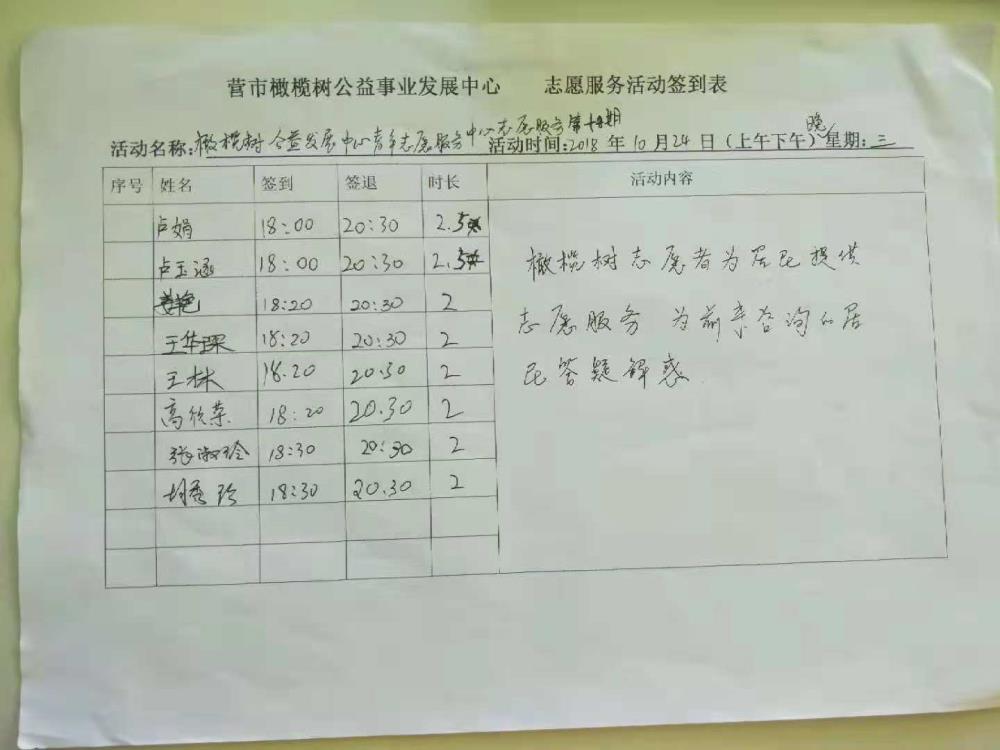 营市橄榄树公益事业发展中心 志愿服务活动签到表
活动名称:橄榄树公益发展中心青年志愿服务中心志愿服务第十期 活动时间:2018年10月24日(上午下午)晚 星期:三
序号 姓名 签到 签退 时长 活动内容
卢娟 18:00 20:30 2.5
卢玉涵 18:00 20:30 2.5
姜艳 18:20 20:30 2
王华琛 18:20 20:30 2
王林 18.20 20.30 2
高欣荣 18:20 20.30 2
张淑玲 18:30 20:30 2
胡秀玲 18:30 20.30 2
橄榄树志愿者为居民提供
志愿服务 为前来咨询的居
民答疑解惑.